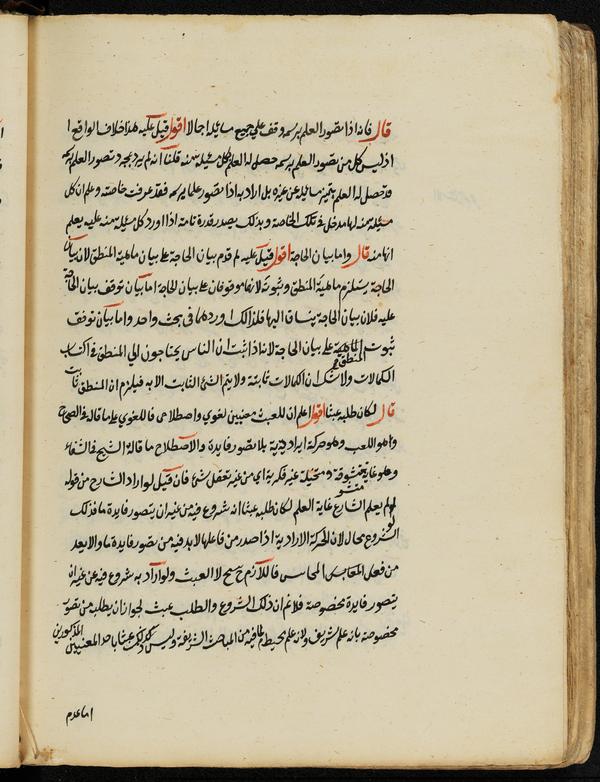 قال فانه اذا تصور العلم برسمه وقف على جميع مسائله اجمالا اقول قيل عليه هذا خلاف الواقع
اذ ليس كل من تصور العلم برسمه حصل له العلم بكل مسئلة منه قلنا انه لم يرد بمجرد تصور العلم برسمه
قد حصل له العلم بتميز مسائله عن غيره بل اراد به اذا تصور علما برسمه فقد عرفت خاصته وعلم ان كل
مسئلة منه لها مدخل في تلك الخاصة وبذلك يصدر قدرة تامة اذا اورد كل مسئلة منه عليه يعلم
انها منه قال واما بيان الحاجة اقول قيل عليه لم قدم بيان الحاجة على بيان ماهية المنطق لان بيان
الحاجة يستلزم ماهية المنطق وثبوته لانهما موقوفان على بيان الحاجة اما بيان توقف بيان الحاجة
عليه فلان بيان الحاجة ينساق اليها فلذلك اوردهما في بحث واحد واما بيان توقف
ثبوت الماهية على بيان الحاجة لانه اذا ثبت ان الناس يحتاجون الى المنطق في اكتساب
المنطق
الكمالات ولا شك ان الكمالات ثابتة ولا يتم الشئ الثابت الا به فيلزم ان المنطق ثابت
قال لكان طلبه عبثا اقول اعلم ان للعبث معنيين لغوي واصطلاحي فاللغوي على ما قاله في الصحاح
وهو اللعب وهو حركة ارادية بلا تصور فايدة والاصطلاح ما قاله الشيخ في الشفاء
وهو غاية متشوقة متخيلة غير فكرية اي من غير تعقل شئ فان قيل لو اراد الشارح من قوله
لو لم يعلم الشارع غاية العلم لكان طلبه عبثا انه شروع فيه من غير ان يتصور فايدة ما فذلك
الشروع محال لان الحركة الارادية اذا صدر من فاعلها لا بد فيه من تصور فايدة ما والا يعد
من فعل فاللازم ح لا العبث ولو اراد به شروع فيه عن غير ان
يتصور فايدة مخصوصة فلا نم ان ذلك الشروع والطلب عبث لجواز ان يطلبه من تصور
مخصوصة بانه علم شريف ولانه علم يحيط لما فيه من المباحث الشريفة وليس ذلك عبثا باحد المعنيين المذكورين
اما عدم